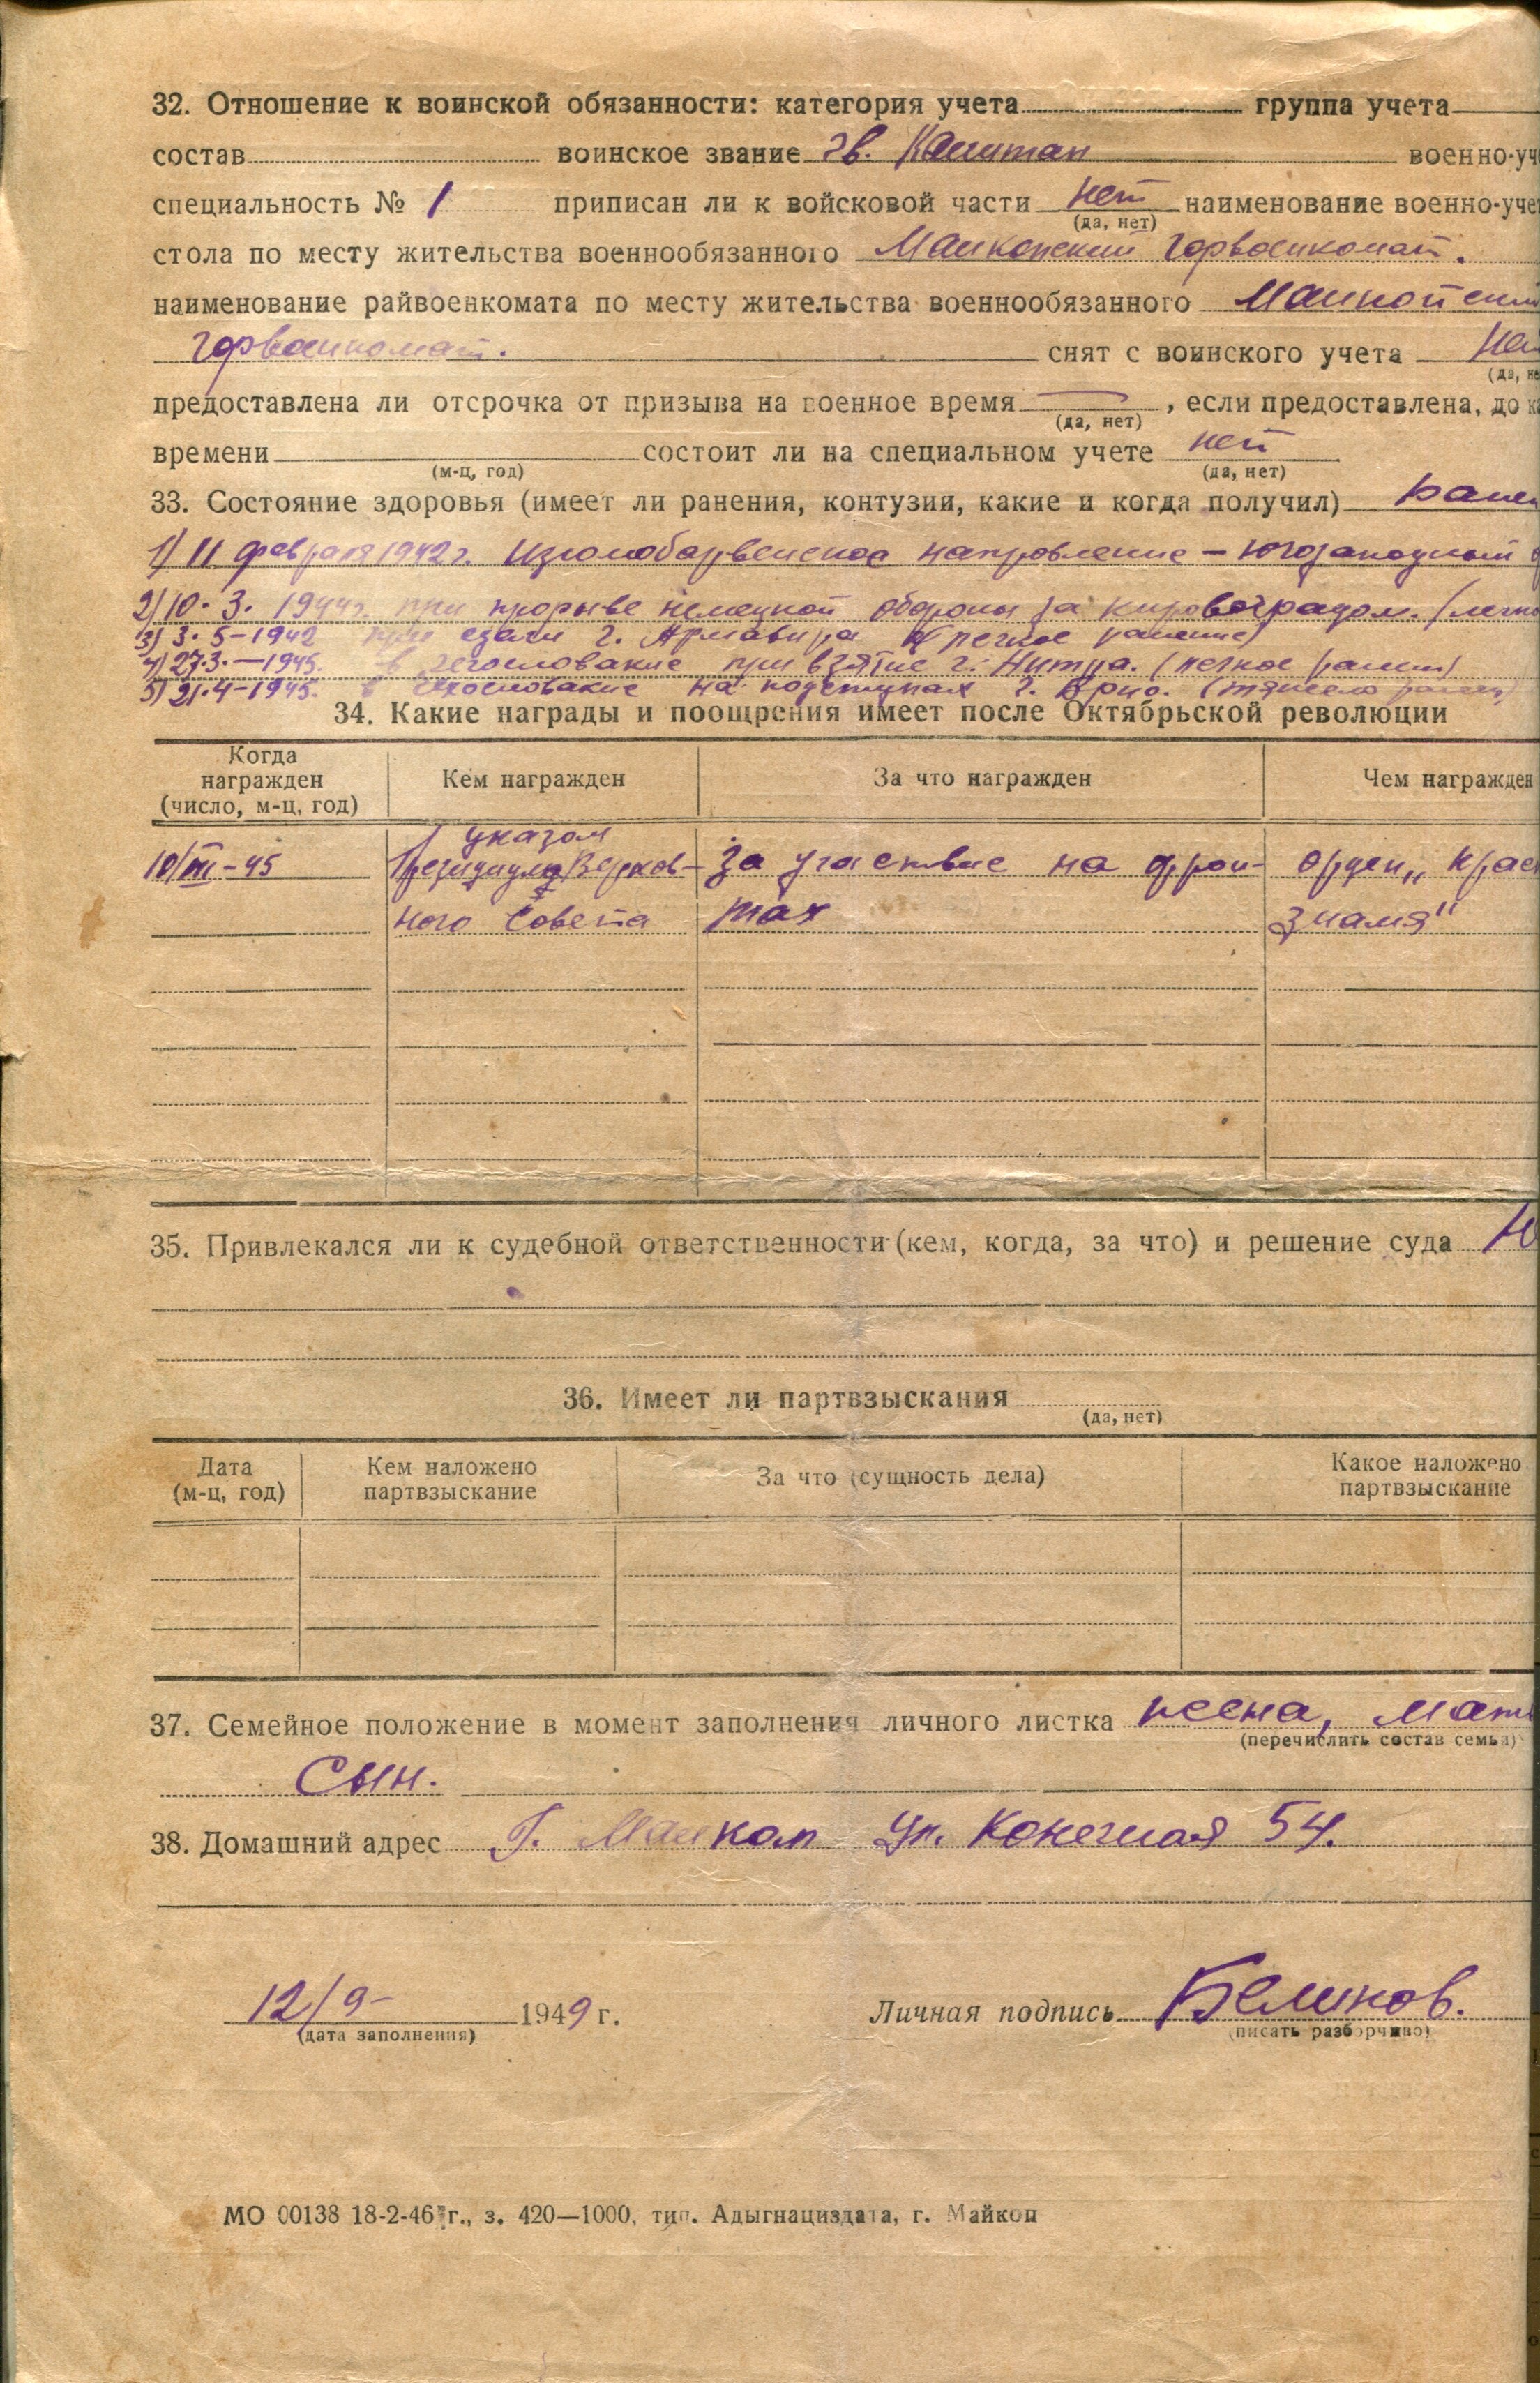 32. Отношение к воинской обязанности: категория учета группа учета
состав воинское звание гв. Капитан военно-уч
специальность № 1 приписан ли к войсковой части нет наименование военно-уче
(да, нет)
стола по месту жительства военнообязанного Майкопский Горвоенкомат.
наименование райвоенкомата по месту жительства военнообязанного Майкопский
Горвоенкомат. снят с воинского учета нет
(да, не
предоставлена ли отсрочка от призыва на военное время , если предоставлена, до к
(да, нет)
времени состоит ли на специальном учете нет
(м-ц, год) (да, нет)
33. Состояние здоровья (имеет ли ранения, контузии, какие и когда получил) Ранен
1) 11 февраля 1942 г. направление – югозападный
2) 10. 3. 1944г. при прорыве немецкой обороны за кировоградом. (легко
3) 3. 5 – 1942 при сдачи г. Армавира (легкое ранение)
4) 27.3. – 1945. в чегословакие при взятие г. Нитра. (легкое ранен)
5) 21.4 – 1945. в на подступах г. Брно. (тяжело ранен)
34. Какие награды и поощрения имеет после Октябрьской революции
Когда награжден (число, м-ц, год) Кем награжден За что награжден Чем награжден
указом
10/III – 45 Президиума Верхов- За участвие на фрон- орден „Крас
ного Совета тах знамя"
35. Привлекался ли к судебной ответственности (кем, когда, за что) и решение суда
36. Имеет ли партвзыскания
(да, нет)
Дата (м-ц, год) Кем наложено партвзыскание За что (сущность дела) Какое наложено партвзыскание
37. Семейное положение в момент заполнения личного листка жена, мать
(перечислить состав семьи)
Сын.
38. Домашний адрес Г. Майкоп ул. Конечная 54.
12/9– 1949 г. Личная подпись Белинов.
(дата заполнения) (писать разборчиво)
МО 00138 18-2-46 г., з. 420—1000, тип. Адыгнациздата, г. Майкоп